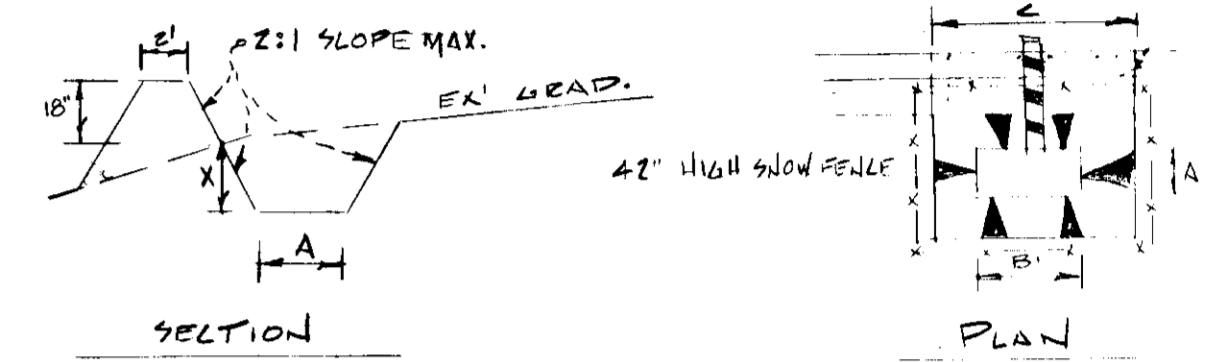 2'
2:1 SLOPE MAX.
18"
EX' GRAD.
X
A
SECTION
C
42" HIGH SNOW FENCE
A
B'
PLAN